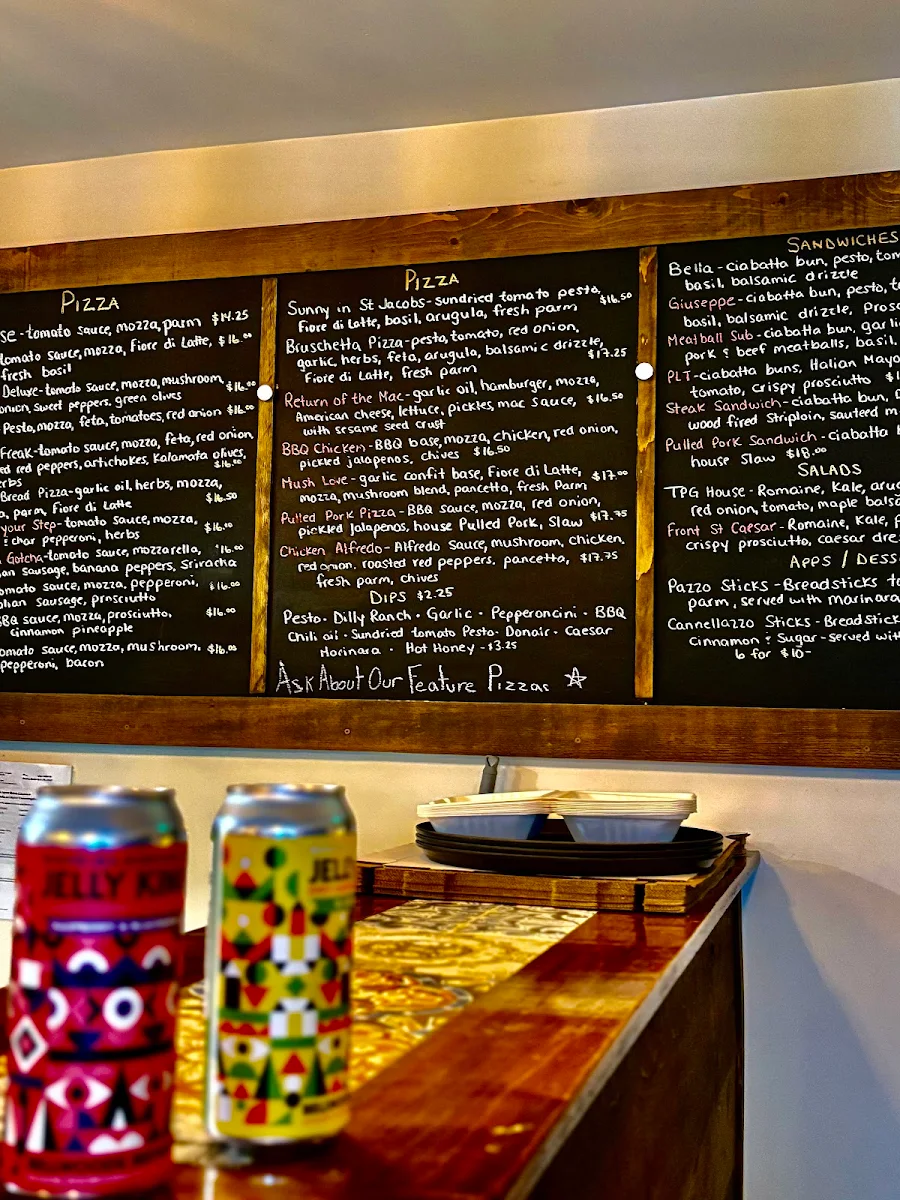 PIZZA
se - tomato sauce, mozza, parm $14.25
tomato sauce, mozza, Fiore di Latte, $16.00
fresh basil
Deluxe - tomato sauce, mozza, mushroom, $16.00
onion, sweet peppers, green olives
Pesto, mozza, feta, tomatoes, red onion $16.00
Freak - tomato sauce, mozza, feta, red onion,
ed red peppers, artichokes, Kalamata olives,
erbs $16.50
Bread Pizza - garlic oil, herbs, mozza,
a, parm, Fiore di Latte $16.50
your Step - tomato sauce, mozza,
char pepperoni, herbs $16.00
Gotcha - tomato sauce, mozzarella, $16.00
an sausage, banana peppers, Sriracha
omato sauce, mozza, pepperoni, $16.00
alian Sausage, prosciutto
BQ sauce, mozza, prosciutto, $16.00
cinnamon pineapple
omato sauce, mozza, mushroom, $16.00
pepperoni, bacon
PIZZA
Sunny in St Jacobs - sundried tomato pesto, $16.50
Fiore di Latte, basil, arugula, fresh parm
Bruschetta Pizza - pesto, tomato, red onion,
garlic, herbs, feta, arugula, balsamic drizzle,
Fiore di Latte, fresh parm $17.25
Return of the Mac - garlic oil, hamburger, mozza,
American cheese, lettuce, pickles, mac sauce, $16.50
with sesame seed crust
BBQ Chicken - BBQ base, mozza, chicken, red onion,
pickled jalapenos, chives $16.50
Mush Love - garlic confit base, Fiore di Latte,
mozza, mushroom blend, pancetta, fresh Parm $17.00
Pulled Pork Pizza - BBQ sauce, mozza, red onion,
pickled Jalapenos, house Pulled Pork, Slaw $17.75
Chicken Alfredo - Alfredo Sauce, mushroom, chicken,
red onion, roasted red peppers, pancetta, $17.75
fresh parm, chives
DIPS $2.25
Pesto · Dilly Ranch · Garlic · Pepperoncini · BBQ
Chili oil · Sundried tomato Pesto · Donair · Caesar
Marinara · Hot Honey - $3.25
Ask About Our Feature Pizzas
SANDWICHES
Bella - ciabatta bun, pesto, tom
basil, balsamic drizzle
Giuseppe - ciabatta bun, pesto, t
basil, balsamic drizzle, Prosc
Meatball Sub - ciabatta bun, garli
pork & beef meatballs, basil,
PLT - ciabatta buns, Italian Mayo
tomato, crispy prosciutto
Steak Sandwich - ciabatta bun,
wood fired Striploin, sauteed m
Pulled Pork Sandwich - ciabatta
house Slaw $18.00
SALADS
TPG House - Romaine, Kale, aru
red onion, tomato, maple balsa
Front St Caesar - Romaine, Kale,
crispy prosciutto, caesar dre
APPS / DESS
Pazzo Sticks - Breadsticks to
parm, served with marinara
Cannellazzo Sticks - Breadstick
Cinnamon & Sugar - served wit
6 for $10-
JELLY KIN
JEL